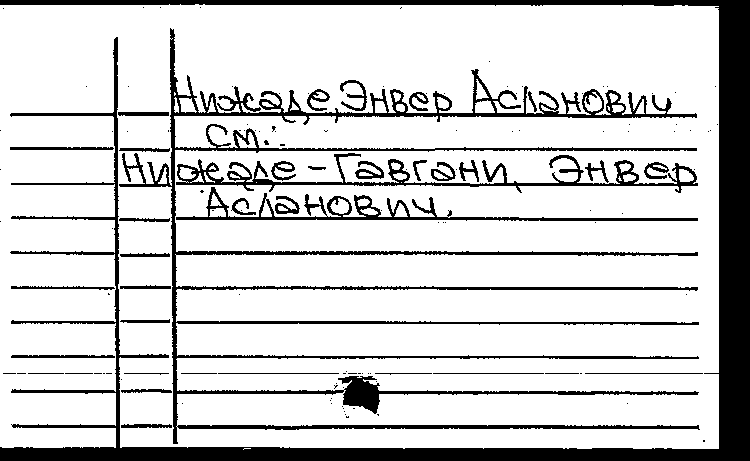 Нижаде, Энвер Асланович
см.:
Нижаде-Гавгани, Энвер
Асланович.